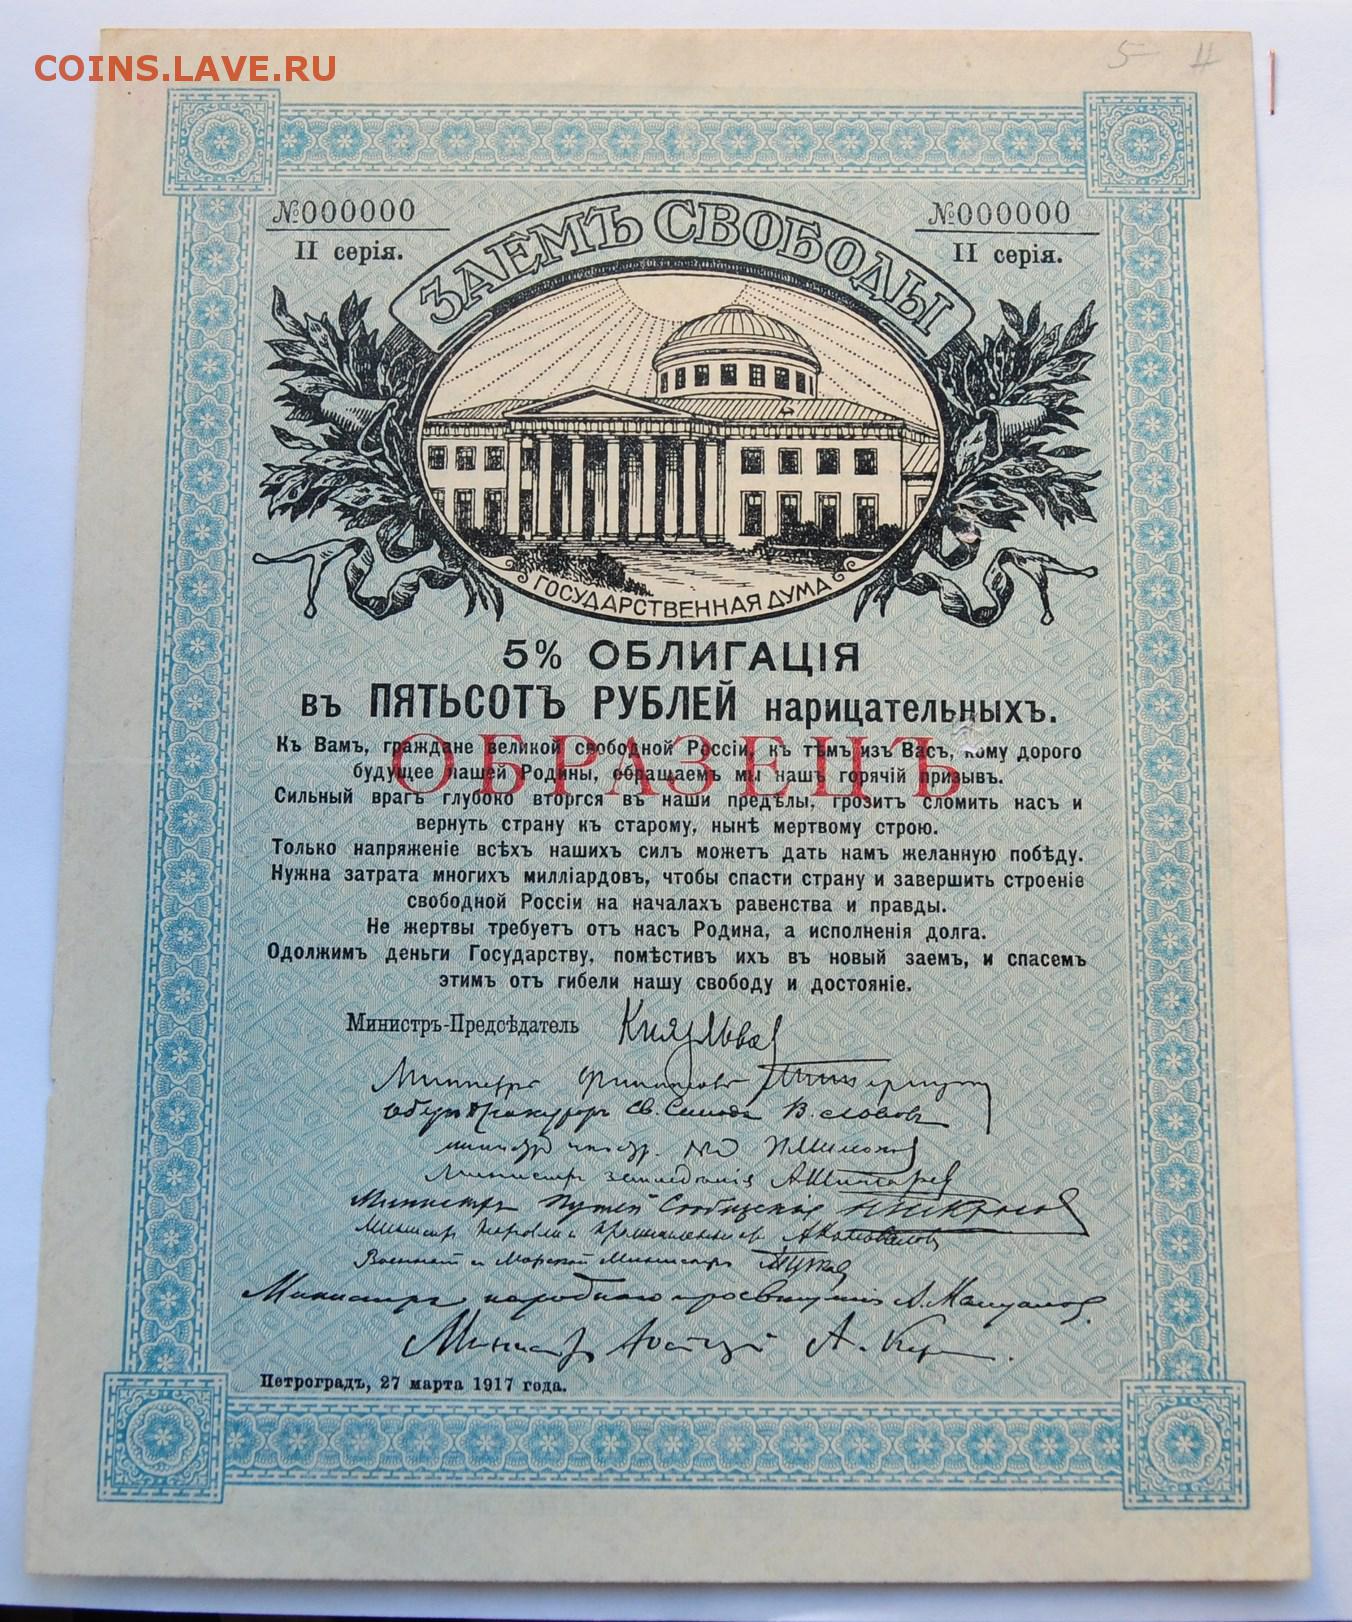 COINS.LAVE.RU
5- 4
№000000
II серія.
№000000
II серія.
ЗАЕМЪ СВОБОДЫ
ГОСУДАРСТВЕННАЯ ДУМА
5% ОБЛИГАЦІЯ
въ ПЯТЬСОТЪ РУБЛЕЙ нарицательныхъ.
ОБРАЗЕЦЪ
Къ Вамъ, граждане великой свободной Россіи, къ тѣмъ изъ Васъ, кому дорого
будущее нашей Родины, обращаемъ мы нашъ горячій призывъ.
Сильный врагъ глубоко вторгся въ наши предѣлы, грозитъ сломить насъ и
вернуть страну къ старому, нынѣ мертвому строю.
Только напряженіе всѣхъ нашихъ силъ можетъ дать намъ желанную побѣду.
Нужна затрата многихъ милліардовъ, чтобы спасти страну и завершить строеніе
свободной Россіи на началахъ равенства и правды.
Не жертвы требуетъ отъ насъ Родина, а исполненія долга.
Одолжимъ деньги Государству, помѣстивъ ихъ въ новый заемъ, и спасемъ
этимъ отъ гибели нашу свободу и достояніе.
Министръ-Предсѣдатель Князь Львов
Министръ Финансовъ
Оберъ Прокуроръ Св. Синода В. Львовъ
П Милюков
Министръ земледѣлія А Шингарев
Министръ Путей Сообщенія
Министр Торговли и Промышленности А Коновалов
Военный и Морской Министръ
Министръ народнаго просвѣщенія А. Мануйлов.
Министр Юстиції А. Кер
Петроградъ, 27 марта 1917 года.